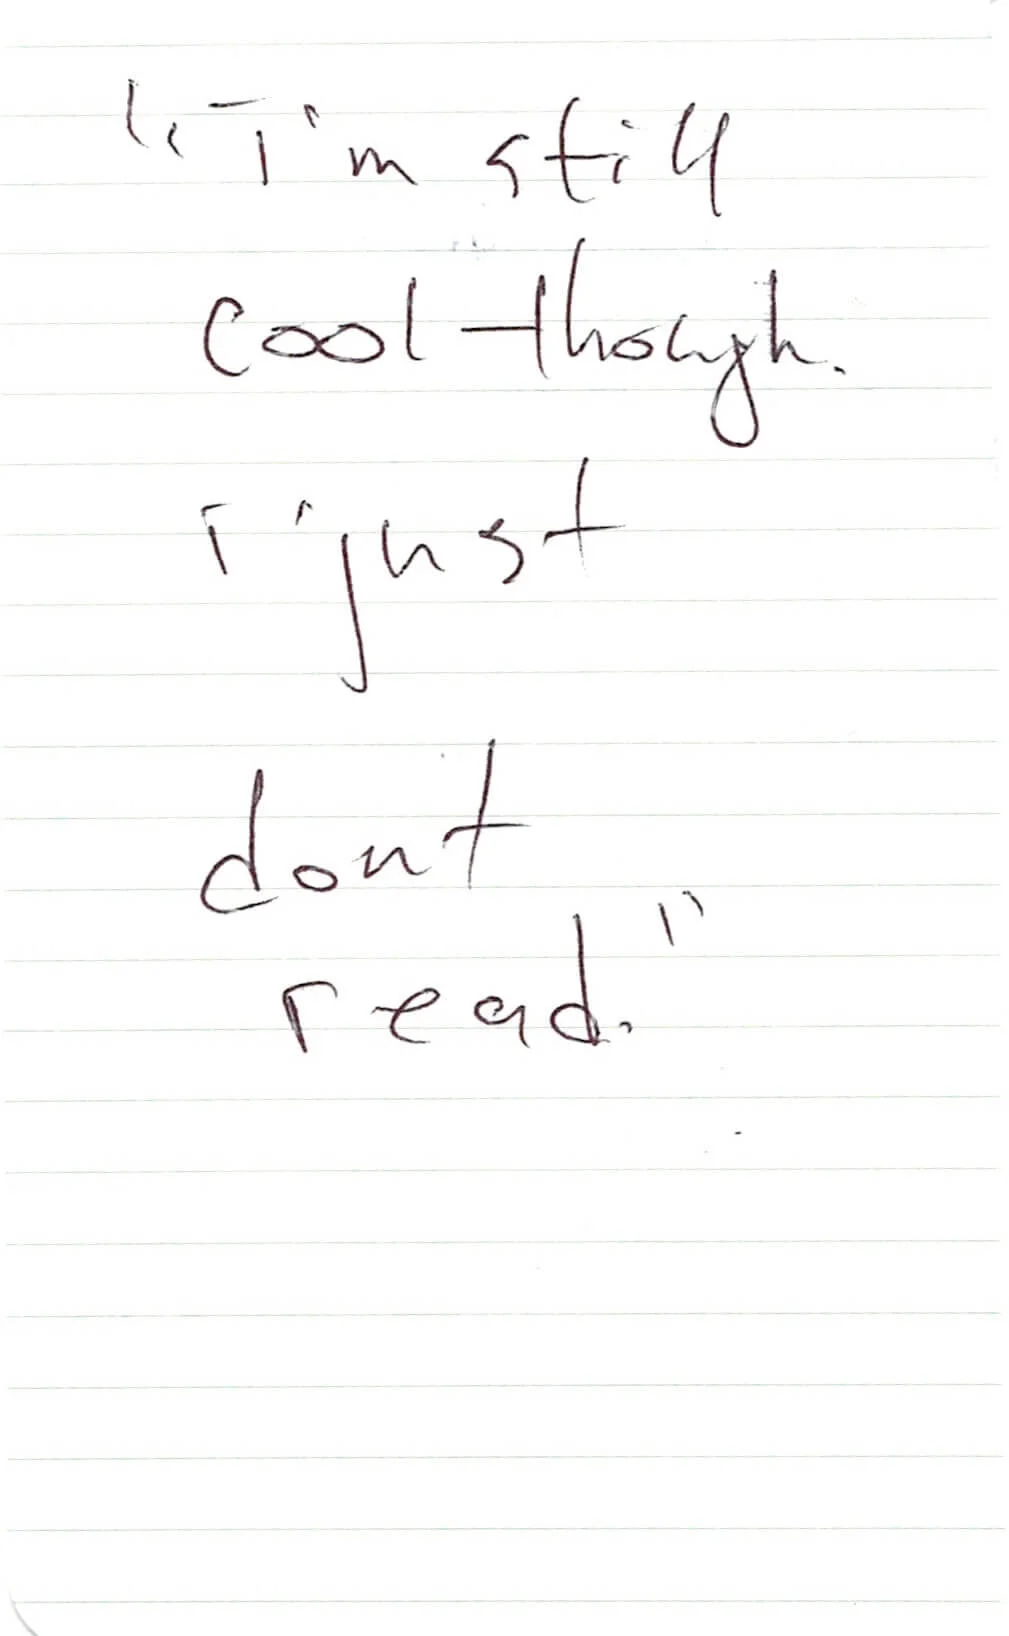 "I'm still
cool though.
I just
dont
read."